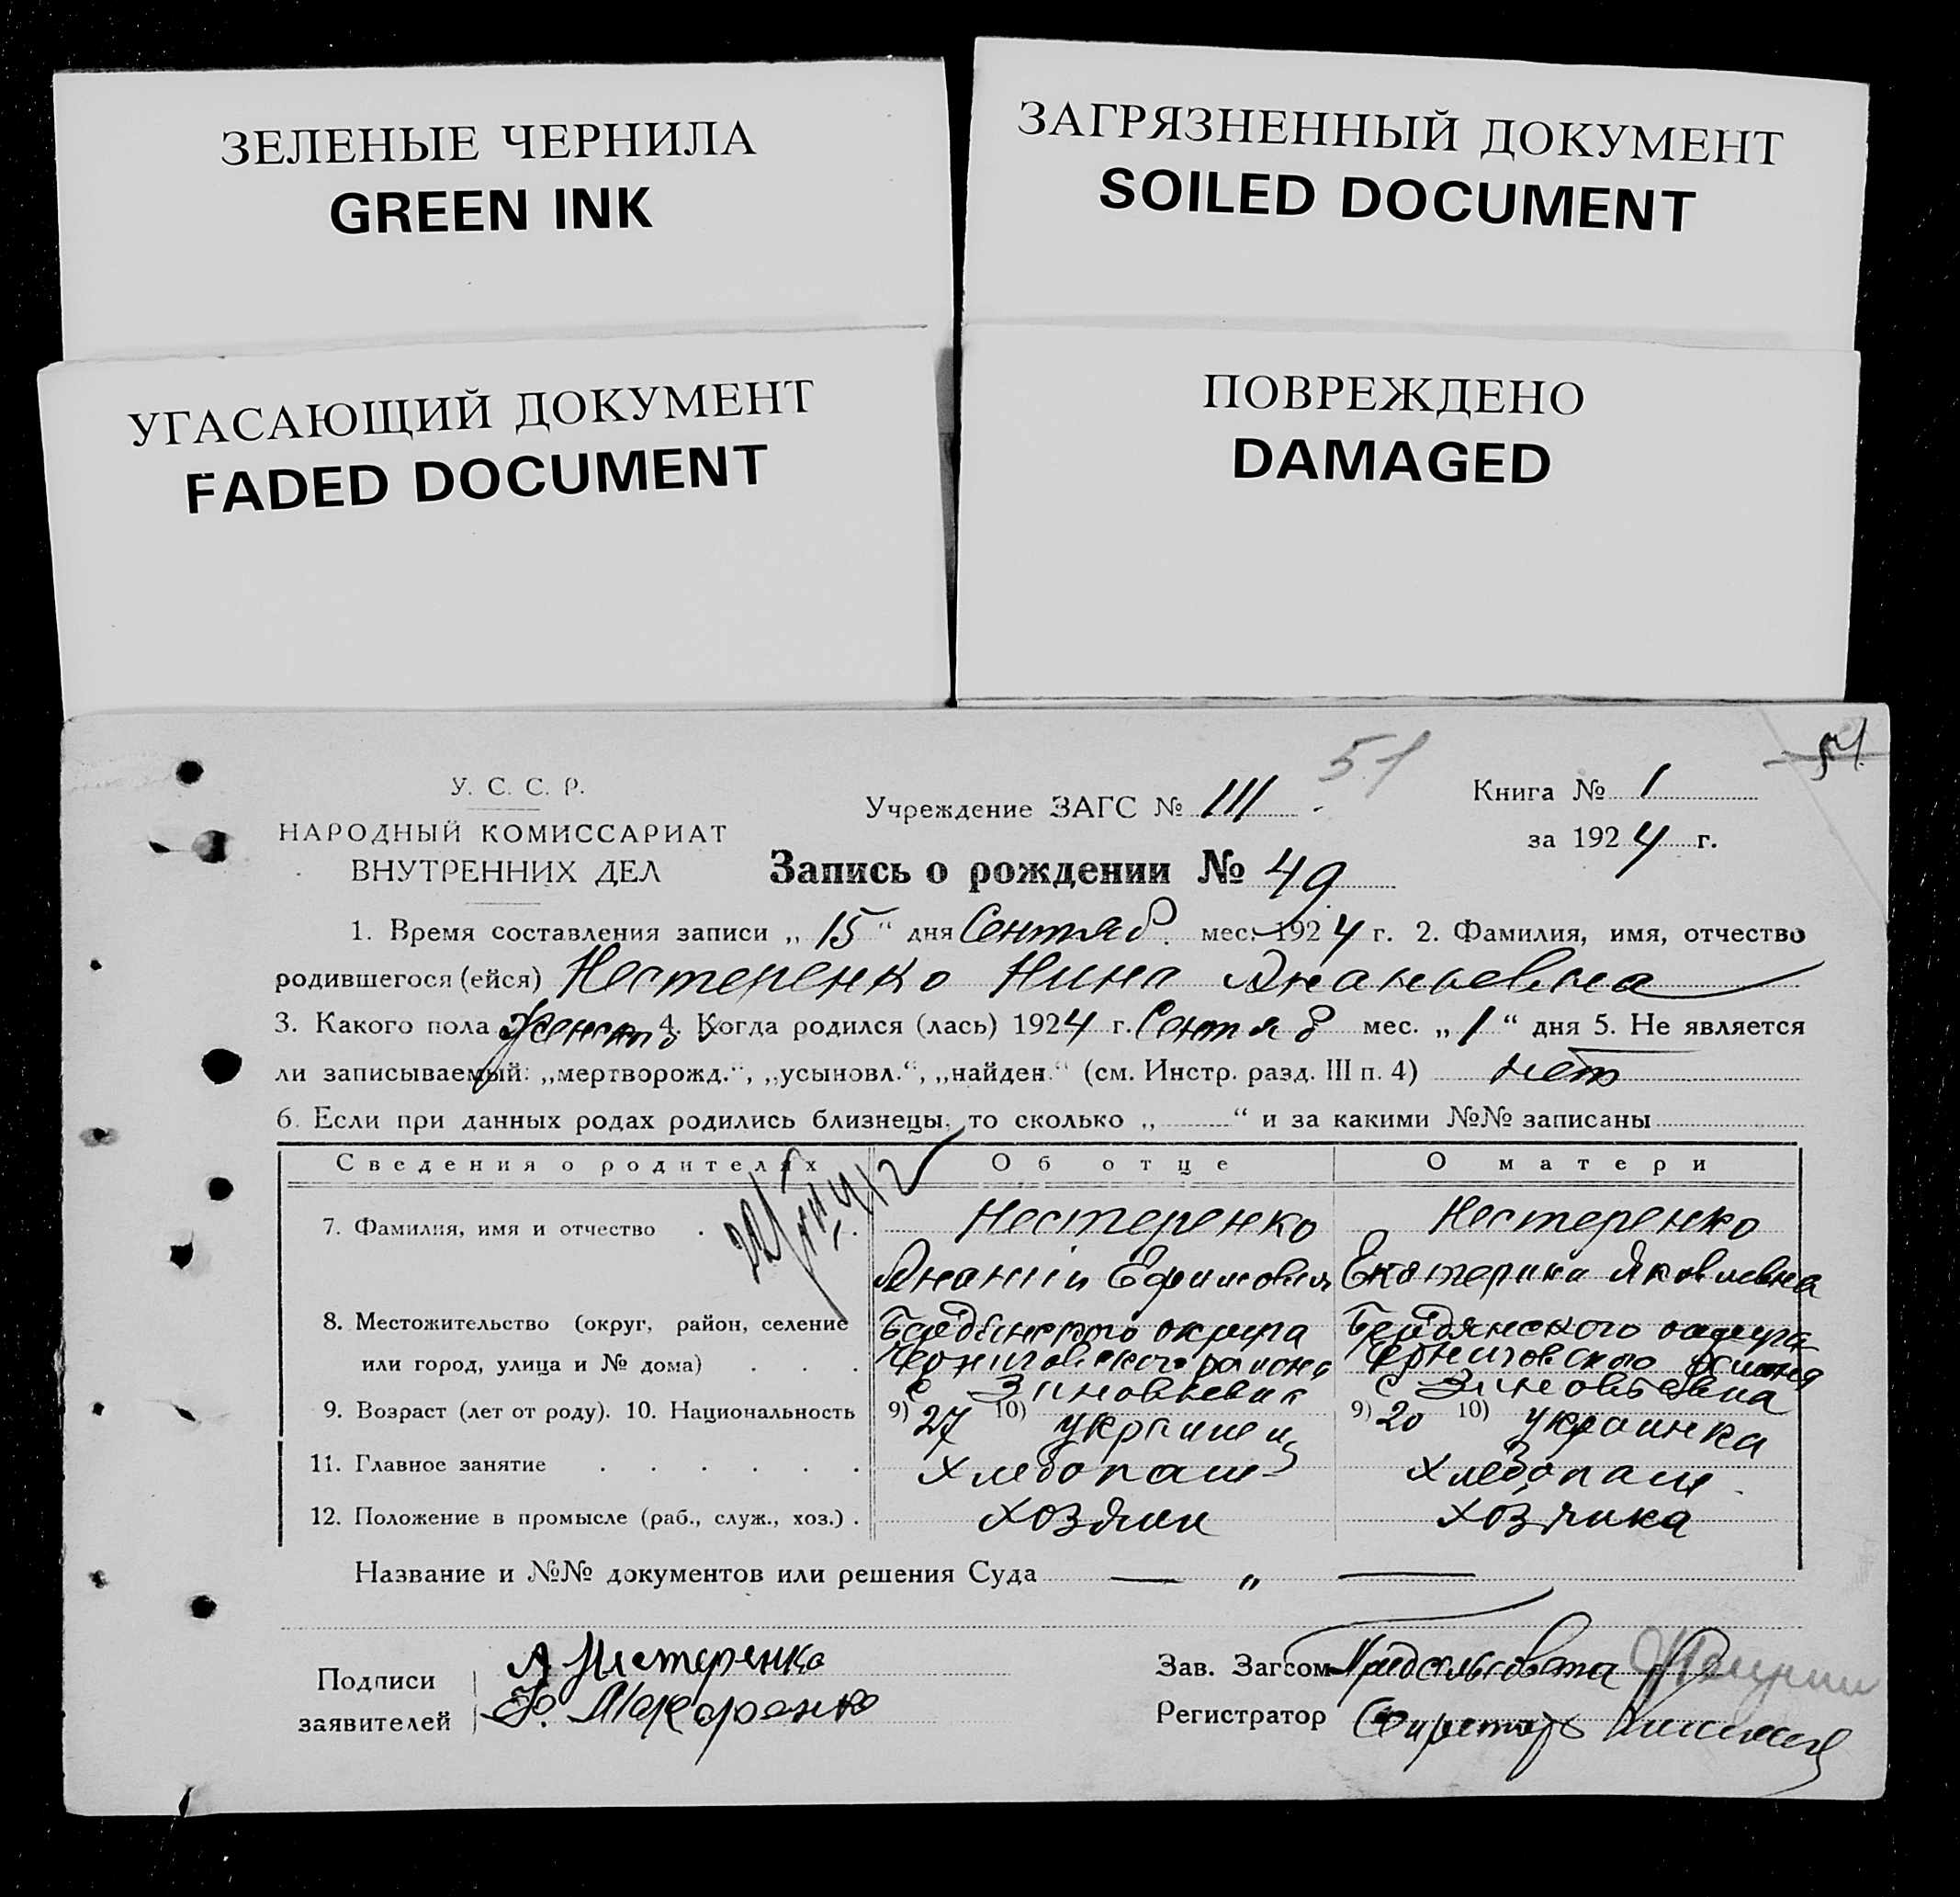 ЗЕЛЕНЫЕ ЧЕРНИЛА
GREEN INK
ЗАГРЯЗНЕННЫЙ ДОКУМЕНТ
SOILED DOCUMENT
УГАСАЮЩИЙ ДОКУМЕНТ
FADED DOCUMENT
ПОВРЕЖДЕНО
DAMAGED
51
51
У. С. С. Р.
НАРОДНЫЙ КОМИССАРИАТ
ВНУТРЕННИХ ДЕЛ
Учреждение ЗАГС № III
Книга № 1
за 1924 г.
Запись о рождении № 49
1. Время составления записи „ 15 “ дня Сентяб. мес. 1924 г. 2. Фамилия, имя, отчество
родившегося (ейся) Нестеренко Нина Ананьевна
3. Какого пола женский 4. Когда родился (лась) 1924 г. Сентяб мес. „ 1 “ дня 5. Не является
ли записываемый: „мертворожд.“, „усыновл.“, „найден.“ (см. Инстр. разд. III п. 4) нет
6. Если при данных родах родились близнецы, то сколько „ “ и за какими №№ записаны
Сведения о родителях Об отце О матери
7. Фамилия, имя и отчество Нестеренко Нестеренко
Ананий Ефимович Екатерина Яковлевна
8. Местожительство (округ, район, селение Бердянского округа Бердянского округа
или город, улица и № дома) Черниговского района Черниговского района
с Зиновьевка с Зиновьевка
9. Возраст (лет от роду). 10. Национальность 9) 27 10) украинец 9) 20 10) украинка
11. Главное занятие хлебопаш хлебопаш
12. Положение в промысле (раб., служ., хоз.) хозяин хозяйка
Название и №№ документов или решения Суда — „ —
Подписи заявителей
А Нестеренко
Макаренко
Зав. Загсом Предсельсовета
Регистратор Секретарь